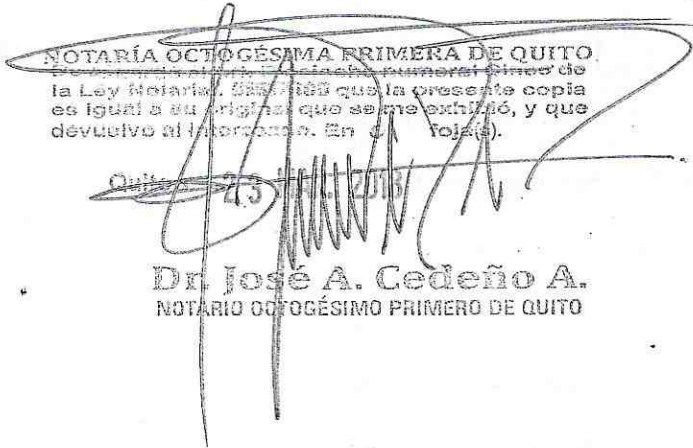 NOTARÍA OCTOGÉSIMA PRIMERA DE QUITO
numeral Cinco de
la Ley Notarial, que la presente copia
es igual a su original que se me exhibió, y que
devuelvo al interesado. En foja(s).
Quito, 23 2018
Dr. José A. Cedeño A.
NOTARIO OCTOGÉSIMO PRIMERO DE QUITO